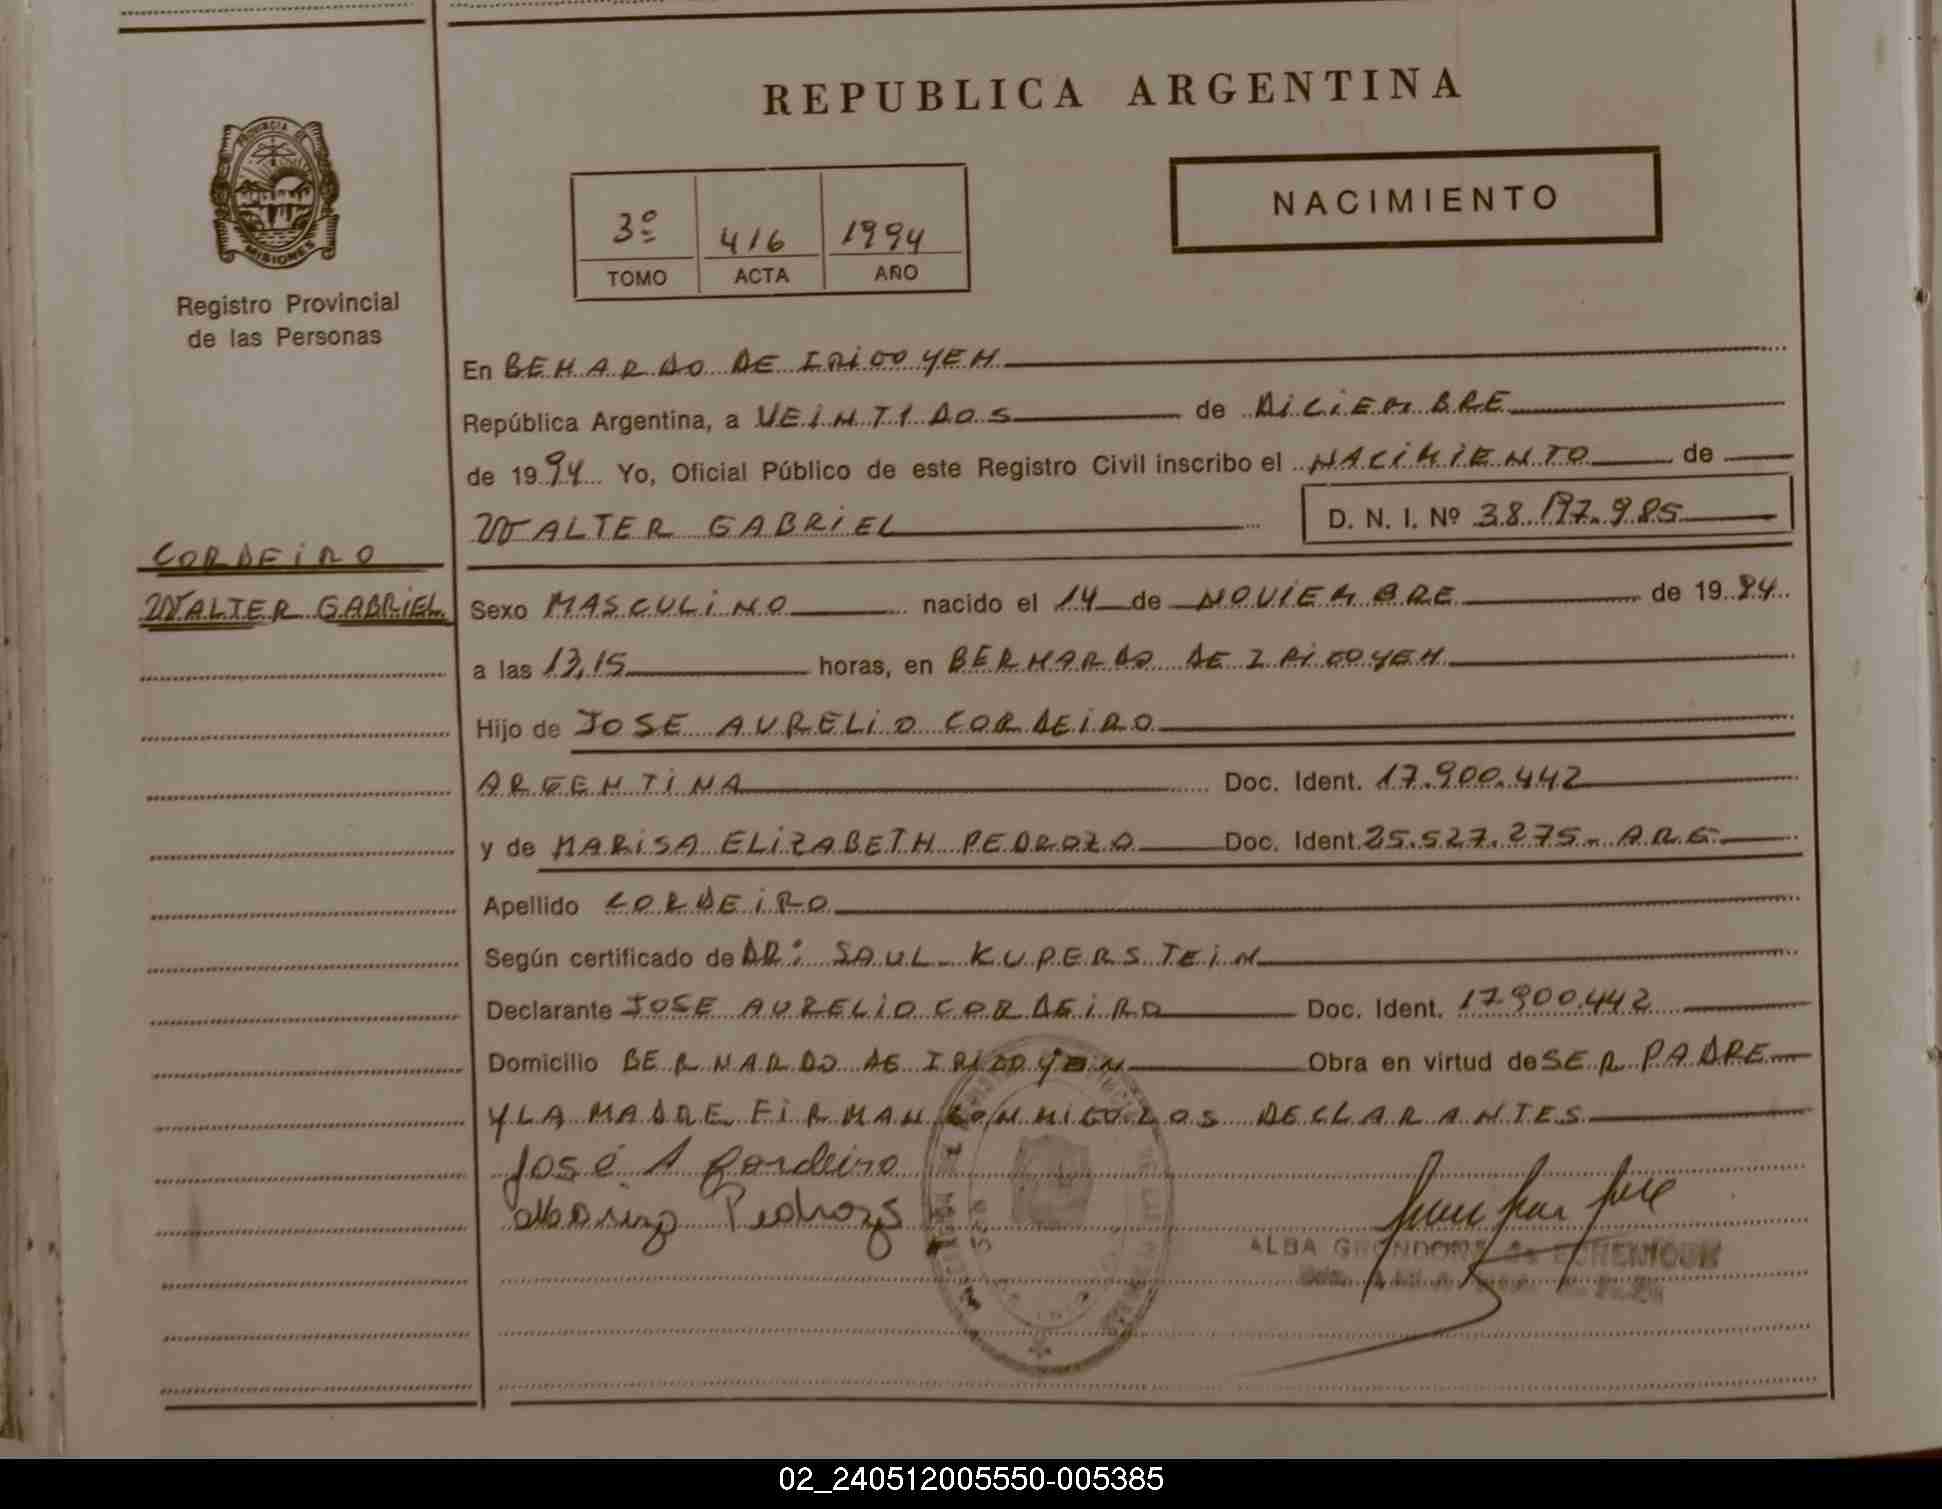 REPUBLICA ARGENTINA
PROVINCIA DE
MISIONES
Registro Provincial
de las Personas
3º 416 1994
TOMO ACTA AÑO
NACIMIENTO
En BEHARDO DE IRIGOYEN
República Argentina, a VEINTIDOS de DICIEMBRE
de 1994 Yo, Oficial Público de este Registro Civil inscribo el NACIMIENTO de
WALTER GABRIEL D. N. I. Nº 38.197.985
CORDEIRO
WALTER GABRIEL
Sexo MASCULINO nacido el 14 de NOVIEMBRE de 1994
a las 13,15 horas, en BERNARDO DE IRIGOYEN
Hijo de JOSE AURELIO CORDEIRO
ARGENTINA Doc. Ident. 17.900.442
y de MARISA ELIZABETH PEDROZO Doc. Ident. 25.527.275- ARG
Apellido CORDEIRO
Según certificado de DR: SAUL KUPERSTEIN
Declarante JOSE AURELIO CORDEIRO Doc. Ident. 17.900.442
Domicilio BERNARDO DE IRIGOYEN Obra en virtud de SER PADRE
Y LA MADRE FIRMAN CONMIGO LOS DECLARANTES
José A Cordeiro
Pedrozo
ALBA
02_240512005550-005385